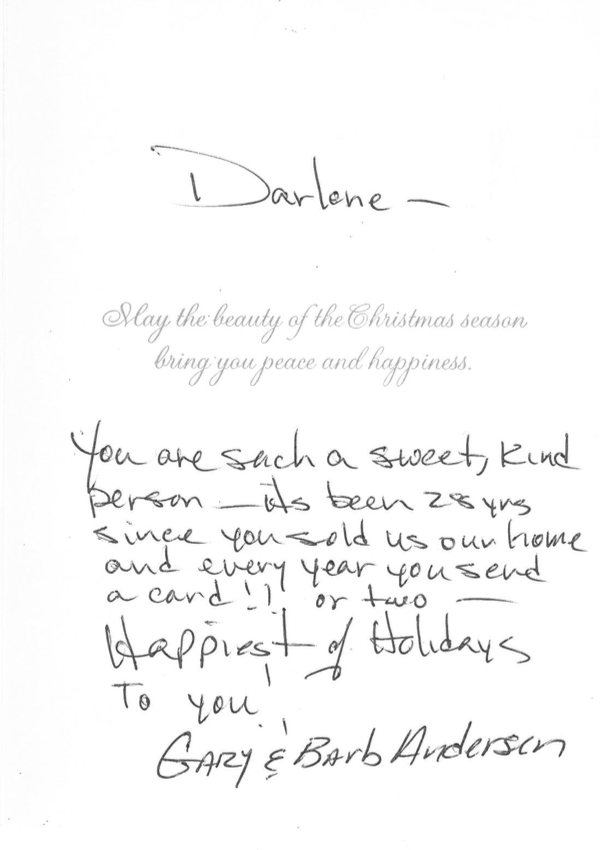 Darlene —
May the beauty of the Christmas season
bring you peace and happiness.
You are such a sweet, kind
person — its been 28 yrs
since you sold us our home
and every year you send
a card!! or two —
Happiest of Holidays
To you!
Gary & Barb Andersen